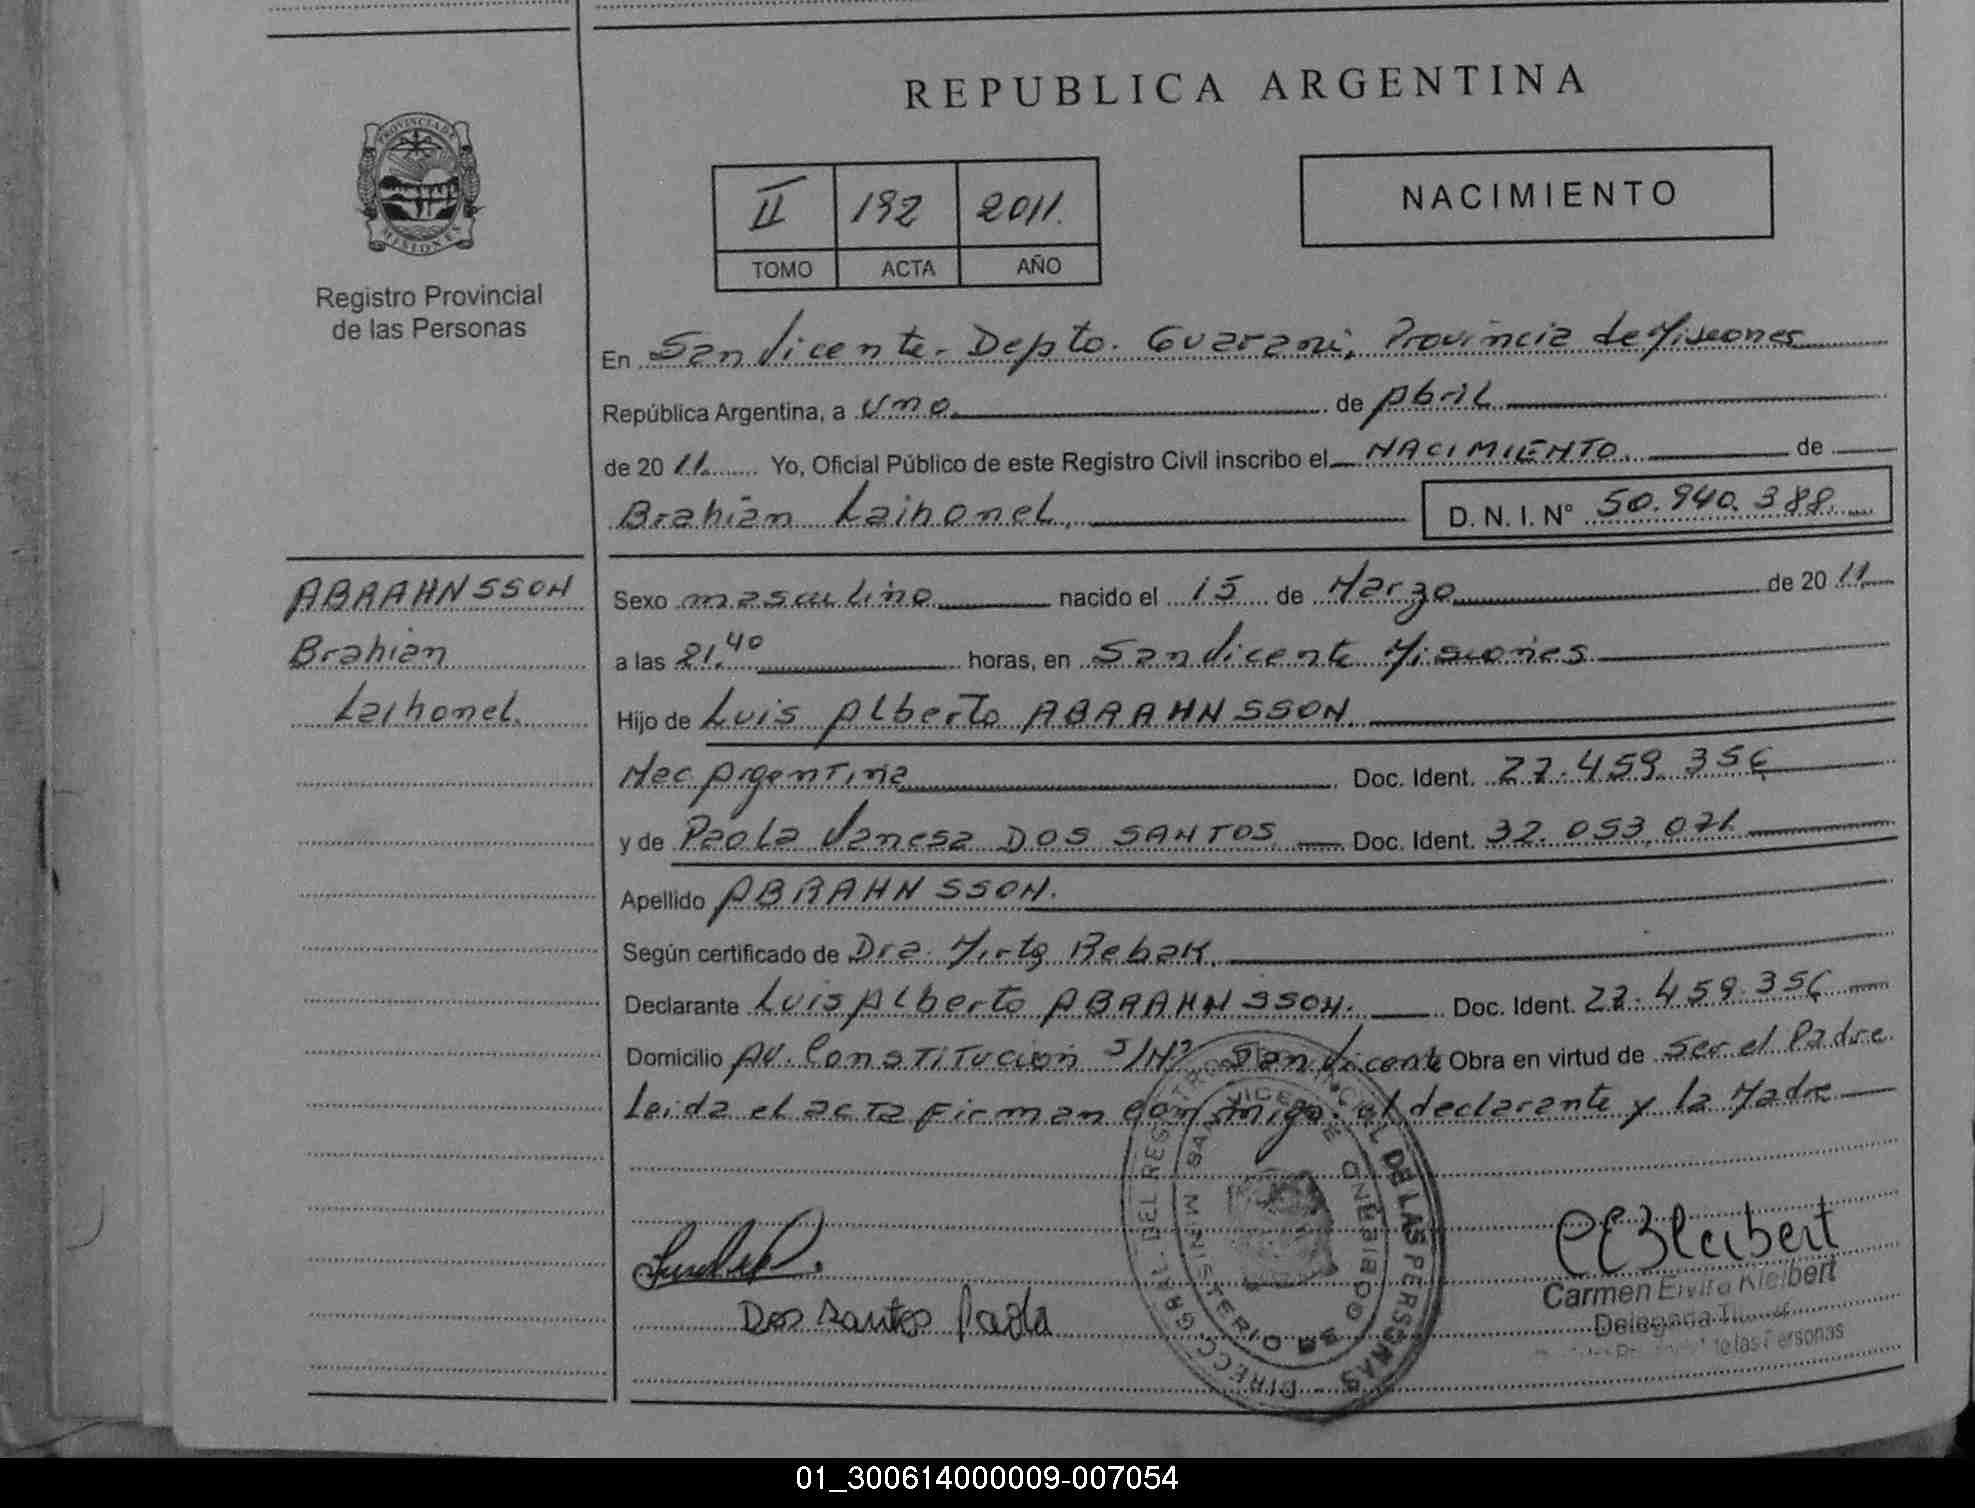 REPUBLICA ARGENTINA
PROVINCIA DE
MISIONES
Registro Provincial
de las Personas
II 192 2011.
TOMO ACTA AÑO
NACIMIENTO
En San Vicente - Depto. Guarani, Provincia de Misiones
República Argentina, a uno de Abril
de 2011 Yo, Oficial Público de este Registro Civil inscribo el NACIMIENTO de
Brahian Laihonel, D. N. I. N° 50.940.388
ABRAHNSSON
Brahian
Laihonel.
Sexo masculino nacido el 15 de Marzo de 2011
a las 21,40 horas, en San Vicente Misiones
Hijo de Luis Alberto ABRAHNSSON.
Nac Argentina Doc. Ident. 22.459.356
y de Paola Vanesa DOS SANTOS Doc. Ident. 32.053.071
Apellido ABRAHNSSON.
Según certificado de Dra. Mirta Rebak.
Declarante Luis Alberto ABRAHNSSON. Doc. Ident. 22.459.356
Domicilio AV. Constitución S/Nº San Vicente Obra en virtud de Ser el Padre
Leida el acta firman conmigo el declarante y la Madre
DIRECC. GRAL. DEL REGISTRO PROVINCIAL DE LAS PERSONAS
SAN VICENTE
MINISTERIO DE GOBIERNO
Dos Santos Paola
CEKleibert
Carmen Elvira Kleibert
Delegada Titular
de las Personas
01_300614000009-007054